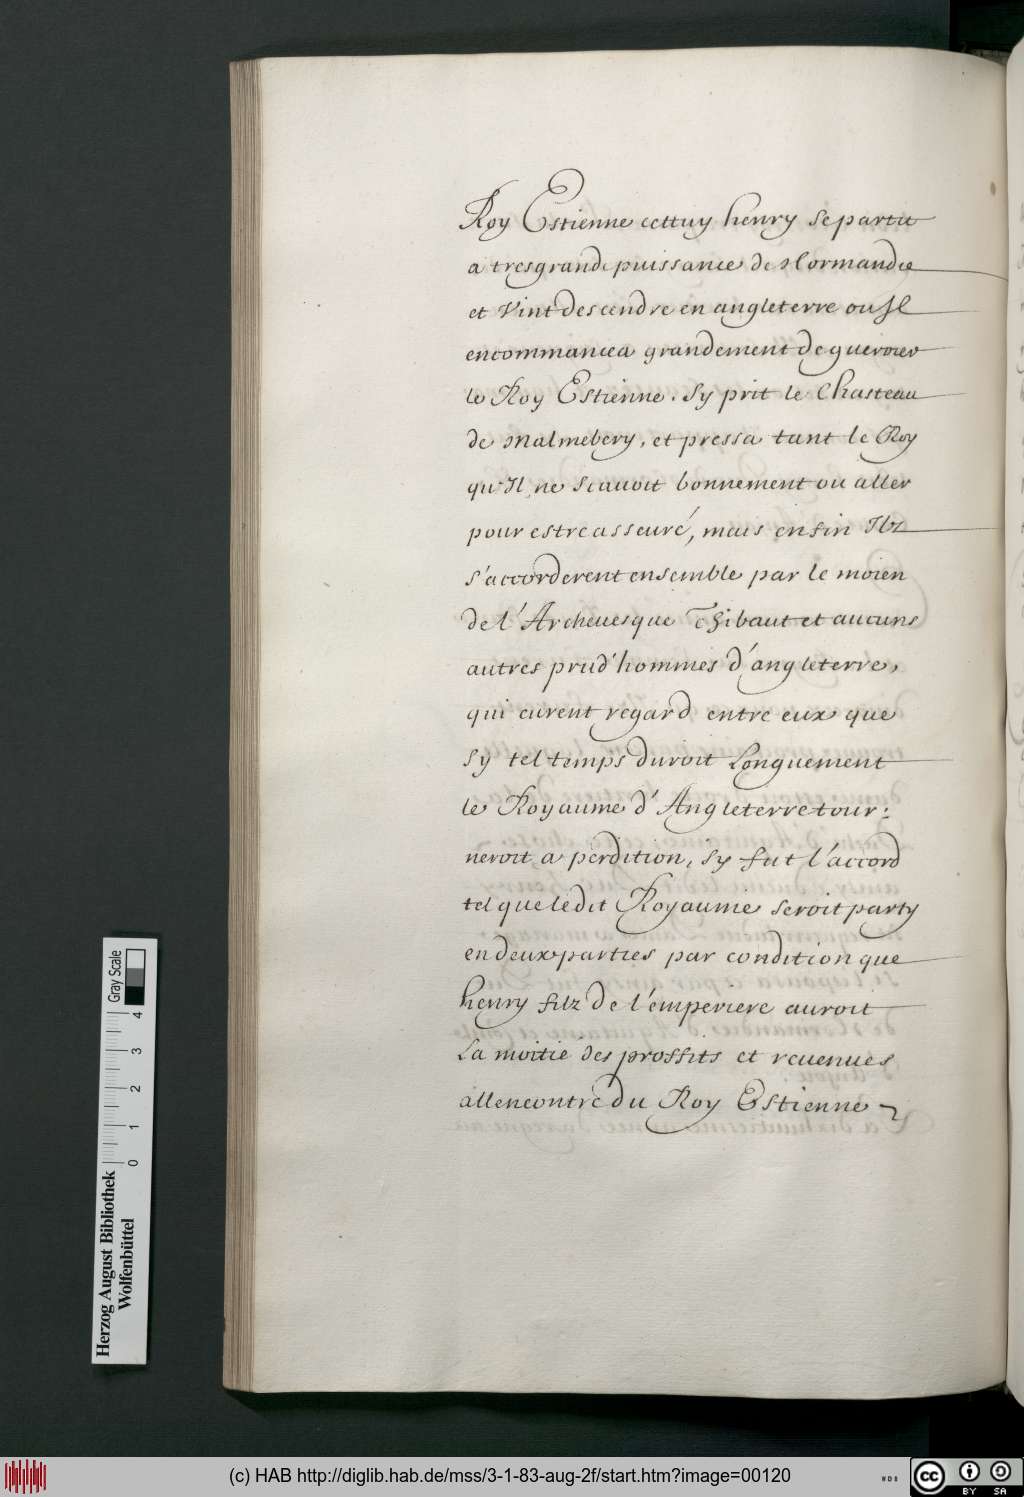 Roy Estienne cettuy henry se partit
a tresgrande puissance de Normandie
et Vint descendre en angleterre ou Jl
encommancea grandement de gueroier
le Roy Estienne. Sy prit le Chasteau
de Malmebery, et pressa tant le Roy
qu'Il ne scauoit bonnement ou aller
pour estre asseuré, mais enfin Ilz
s'accorderent ensemble par le moien
de l'Archeuesque Thibaut et aucuns
autres prud'hommes d'angleterre,
qui eurent regard entre eux que
sy tel temps duroit Longuement
le Royaume d'Angleterre tour:
neroit a perdition, sy fut l'accord
tel que ledit Royaume seroit party
en deux parties par condition que
henry filz de l'emperiere auroit
La moitie des proffits et reuenues
allencontre du Roy Estienne
Herzog August Bibliothek
Wolfenbüttel
Gray Scale
0 1 2 3 4
(c) HAB http://diglib.hab.de/mss/3-1-83-aug-2f/start.htm?image=00120
WDB
cc BY SA